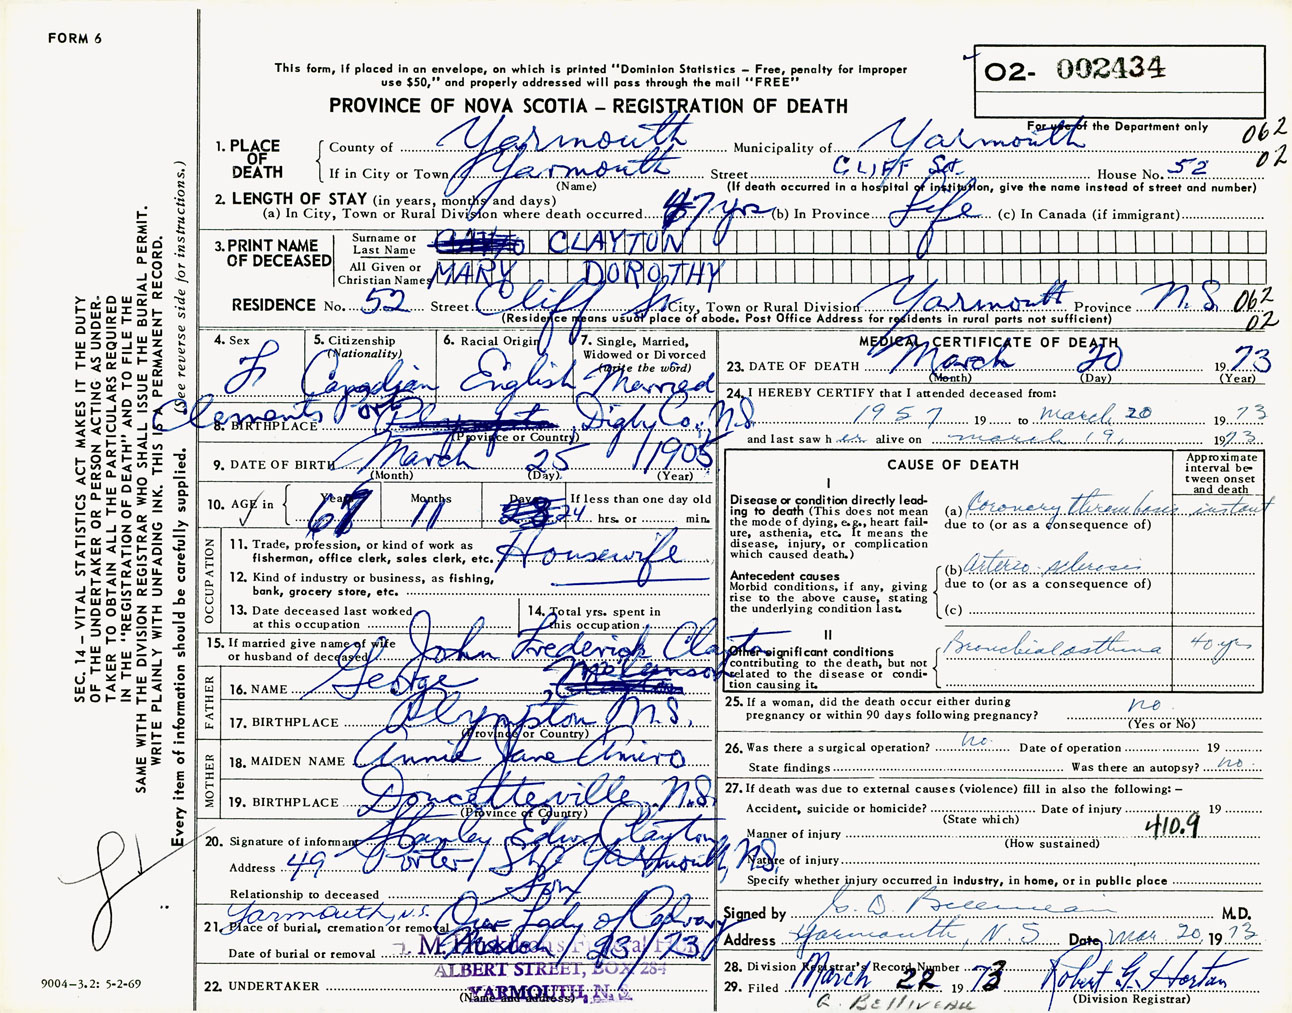 FORM 6
This form, if placed in an envelope, on which is printed "Dominion Statistics – Free, penalty for improper
use $50," and properly addressed will pass through the mail "FREE"
PROVINCE OF NOVA SCOTIA – REGISTRATION OF DEATH
02- 002434
For use of the Department only
062
02
1. PLACE OF DEATH
County of Yarmouth Municipality of Yarmouth
If in City or Town Yarmouth Street CLIFF St. House No. 52
(Name) (If death occurred in a hospital or institution, give the name instead of street and number)
2. LENGTH OF STAY (in years, months and days)
(a) In City, Town or Rural Division where death occurred 47 yrs (b) In Province Life (c) In Canada (if immigrant)
3. PRINT NAME OF DECEASED
Surname or Last Name CLAYTON
All Given or Christian Names MARY DOROTHY
RESIDENCE No. 52 Street Cliff St. City, Town or Rural Division Yarmouth Province N.S. 062
(Residence means usual place of abode. Post Office Address for residents in rural parts not sufficient) 02
4. Sex F
5. Citizenship (Nationality) Canadian
6. Racial Origin English
7. Single, Married, Widowed or Divorced (write the word) Married
8. BIRTHPLACE Clements Port Digby Co., N.S.
(Province or Country)
9. DATE OF BIRTH March 25 1905
(Month) (Day) (Year)
10. AGE in Years 67 Months 11 Days 24 If less than one day old
hrs. or min.
OCCUPATION
11. Trade, profession, or kind of work as
fisherman, office clerk, sales clerk, etc. Housewife
12. Kind of industry or business, as fishing,
bank, grocery store, etc.
13. Date deceased last worked
at this occupation
14. Total yrs. spent in
this occupation
15. If married give name of wife
or husband of deceased John Frederick Clayton
FATHER
16. NAME George
17. BIRTHPLACE Plympton N.S.
(Province or Country)
MOTHER
18. MAIDEN NAME Annie Jane Amiro
19. BIRTHPLACE Doucetteville, N.S.
(Province or Country)
20. Signature of informant Stanley Edw. Clayton
Address 49 Porter St. Yarmouth, N.S.
Relationship to deceased Son
21. Place of burial, cremation or removal Yarmouth, N.S. Our Lady of Calvary
Date of burial or removal March 23/73
22. UNDERTAKER
ALBERT STREET, BOX 284
YARMOUTH, N. S.
(Name and address)
MEDICAL CERTIFICATE OF DEATH
23. DATE OF DEATH March 20 1973
(Month) (Day) (Year)
24. I HEREBY CERTIFY that I attended deceased from:
1957 19 to March 20 1973
and last saw her alive on March 19, 1973
CAUSE OF DEATH
Approximate interval between onset and death
I
Disease or condition directly leading to death (This does not mean the mode of dying, e.g., heart failure, asthenia, etc. It means the disease, injury, or complication which caused death.)
(a) Coronary thrombosis instant
due to (or as a consequence of)
Antecedent causes
Morbid conditions, if any, giving rise to the above cause, stating the underlying condition last.
(b) Arterio-sclerosis
due to (or as a consequence of)
(c)
II
Other significant conditions
contributing to the death, but not related to the disease or condition causing it.
Bronchial asthma 40 yrs
25. If a woman, did the death occur either during
pregnancy or within 90 days following pregnancy? no
(Yes or No)
26. Was there a surgical operation? no. Date of operation 19
State findings Was there an autopsy? no.
27. If death was due to external causes (violence) fill in also the following: –
Accident, suicide or homicide? Date of injury 19
(State which)
410.9
Manner of injury
(How sustained)
Nature of injury
Specify whether injury occurred in industry, in home, or in public place
Signed by M.D.
Address Yarmouth, N.S Date Mar. 20, 1973
28. Division Registrar's Record Number
29. Filed March 22 1973 Robert G. Horton
(Division Registrar)
A. BELLIVEAU
SEC. 14 – VITAL STATISTICS ACT MAKES IT THE DUTY
OF THE UNDERTAKER OR PERSON ACTING AS UNDER-
TAKER TO OBTAIN ALL THE PARTICULARS REQUIRED
IN THE "REGISTRATION OF DEATH" AND TO FILE THE
SAME WITH THE DIVISION REGISTRAR WHO SHALL ISSUE THE BURIAL PERMIT.
WRITE PLAINLY WITH UNFADING INK. THIS IS A PERMANENT RECORD.
Every item of information should be carefully supplied. (See reverse side for instructions.)
9004-3.2: 5-2-69